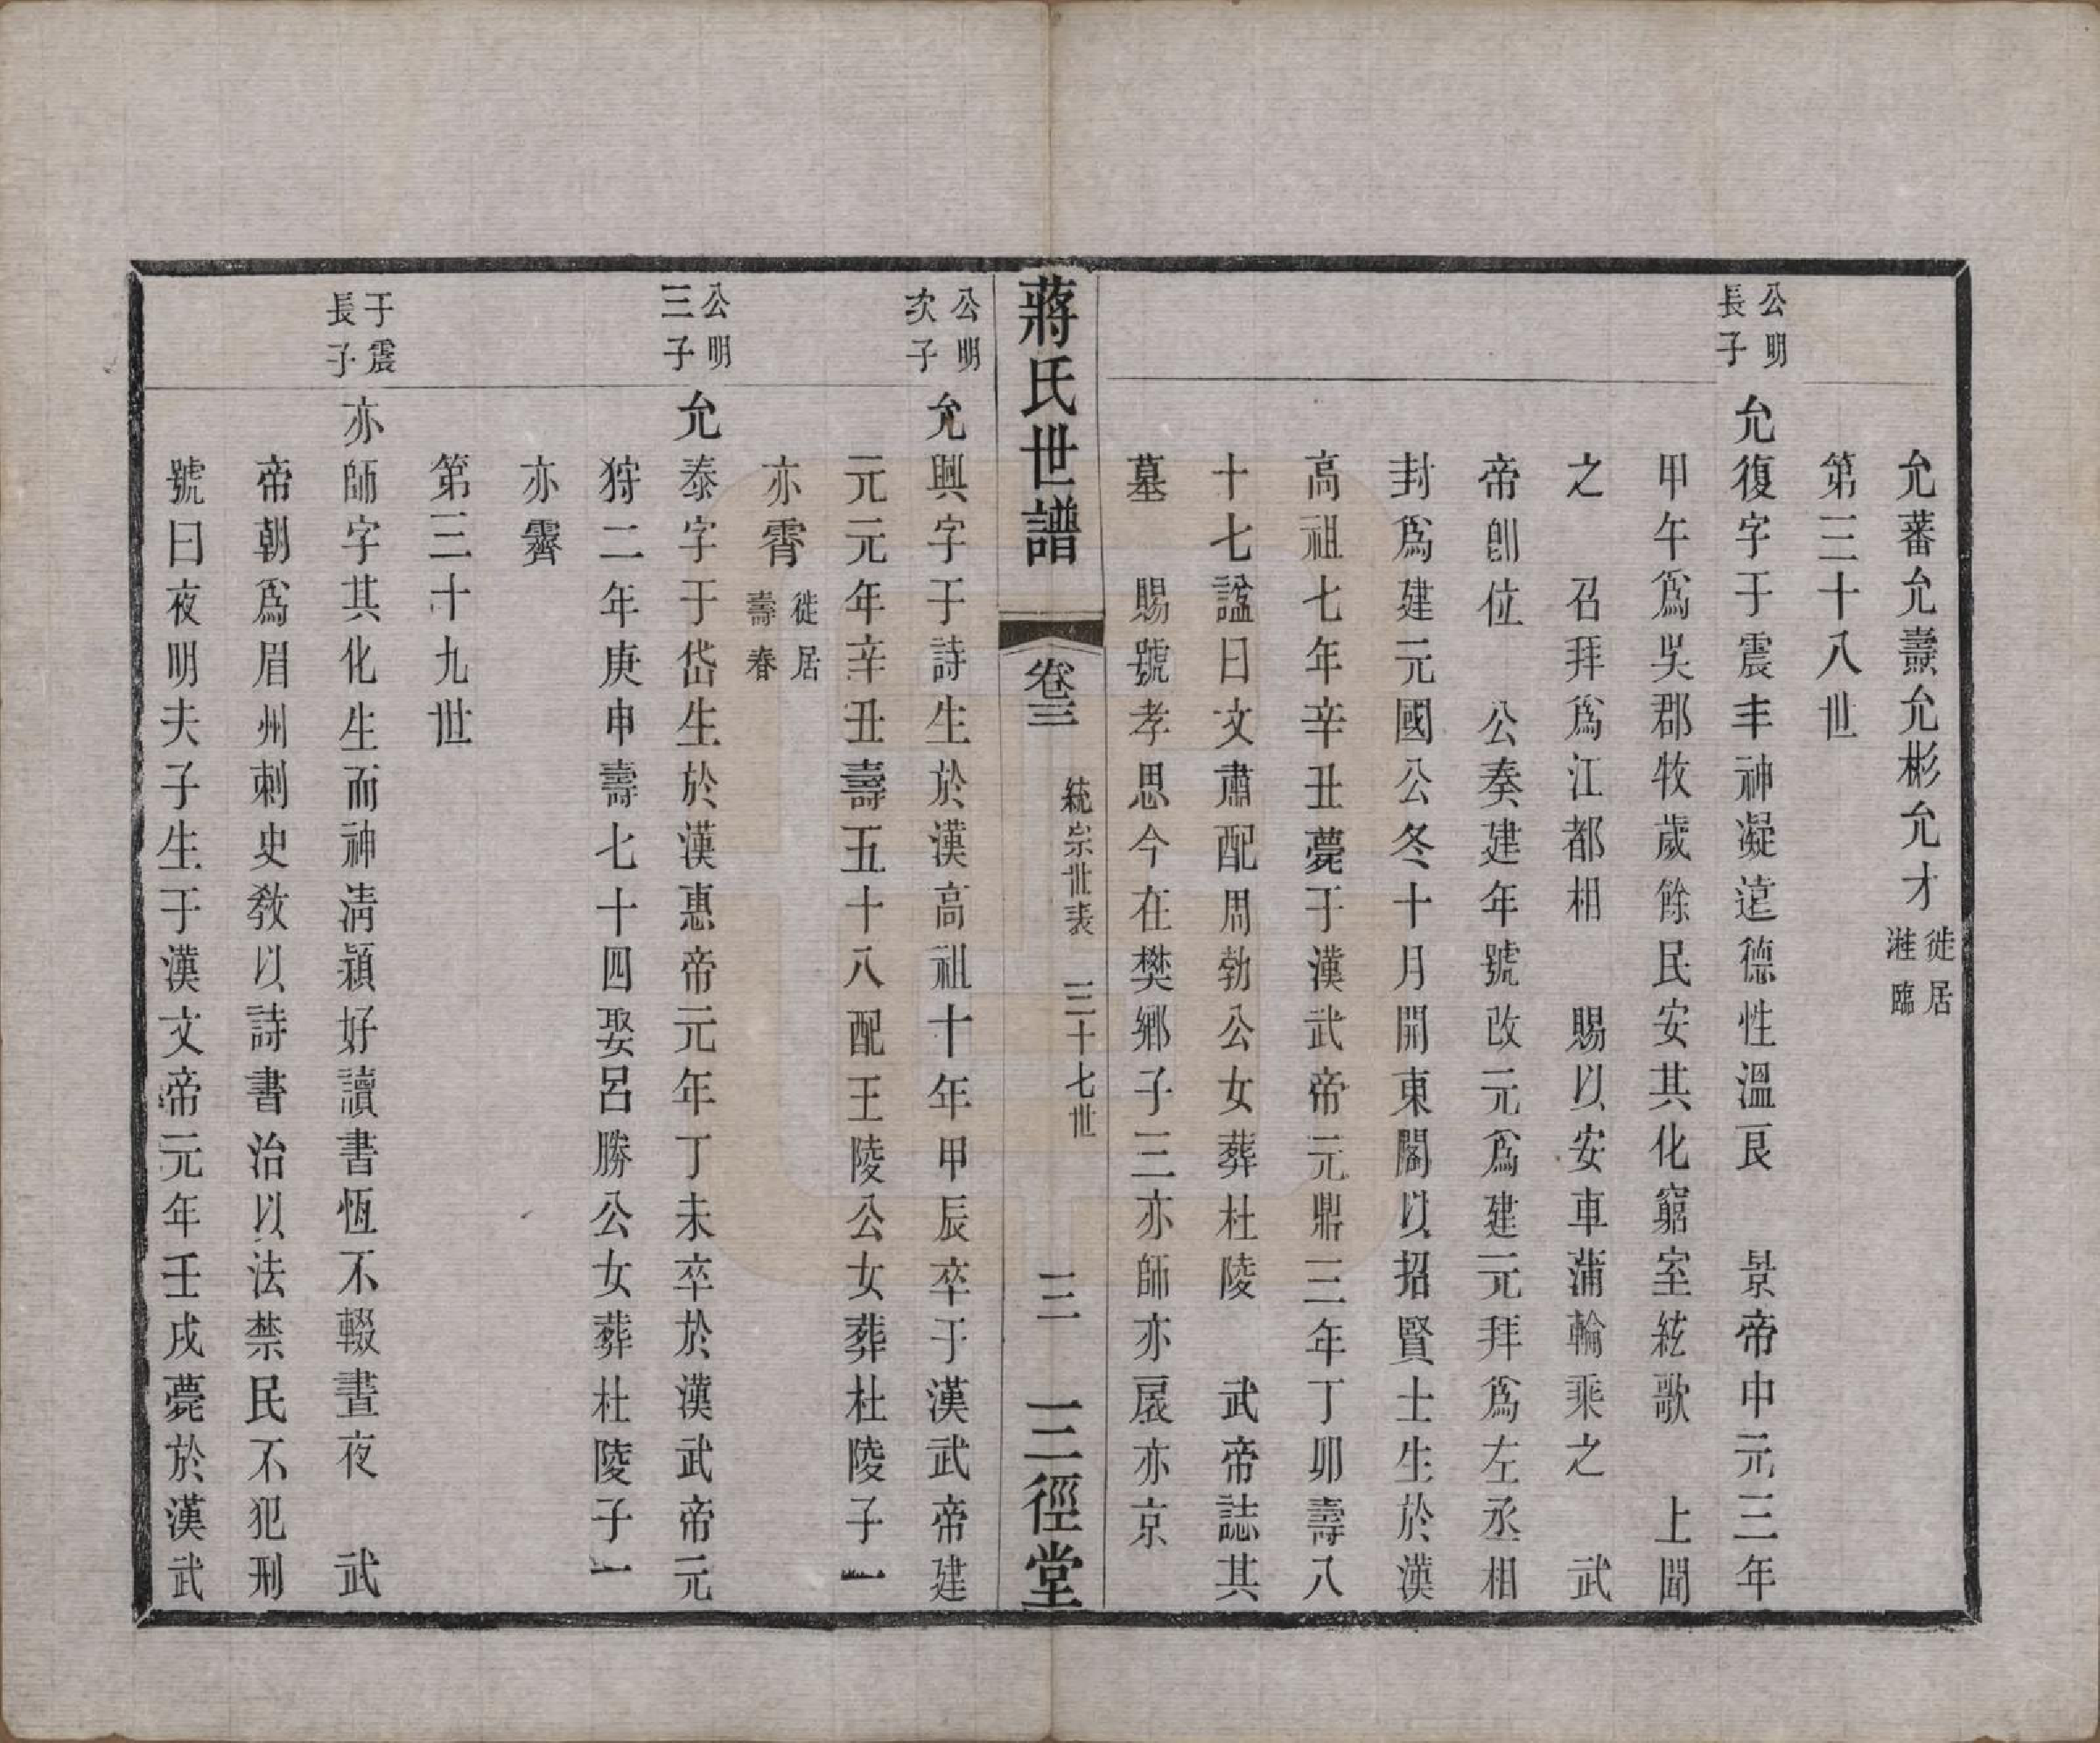 允蕃允燾允彬允才徙居
漄臨
第三十八世
公明
長子
允復字于震丰神凝遠德性溫良 景帝中元三年
甲午爲吳郡牧歲餘民安其化窮室絃歌 上聞
之 召拜爲江都相 賜以安車蒲輪乘之 武
帝卽位 公奏建年號改元爲建元拜爲左丞相
封爲建元國公冬十月開東閣以招賢士生於漢
高祖七年辛丑薨于漢武帝元鼎三年丁卯壽八
十七諡曰文肅配周勃公女葬杜陵 武帝誌其
墓 賜號孝思今在樊鄉子三亦師亦扆亦京
蔣氏世譜
卷三
統宗世表 三十七世
三
三徑堂
公明
次子
允興字于詩生於漢高祖十年甲辰卒于漢武帝建
元元年辛丑壽五十八配王陵公女葬杜陵子一
亦霄徙居
壽春
公明
三子
允泰字于岱生於漢惠帝元年丁未卒於漢武帝元
狩二年庚申壽七十四娶呂勝公女葬杜陵子一
亦霽
第三十九世
于震
長子
亦師字其化生而神淸穎好讀書恆不輟晝夜 武
帝朝爲眉州刺史敎以詩書治以法禁民不犯刑
號曰夜明夫子生于漢文帝元年壬戌薨於漢武